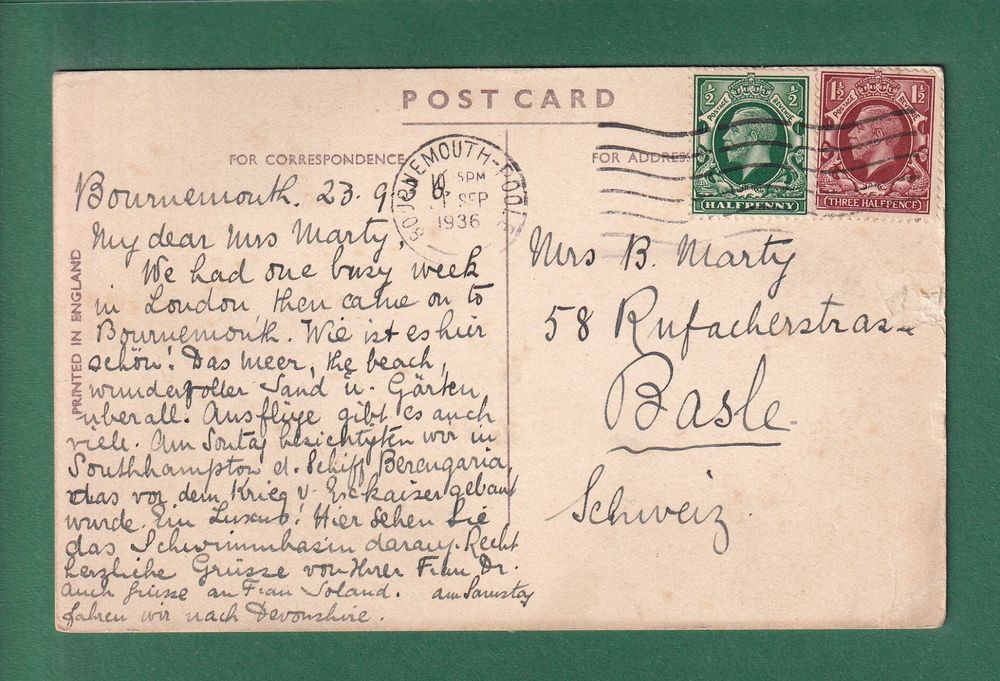 POST CARD
FOR CORRESPONDENCE
FOR ADDRESS
PRINTED IN ENGLAND
BOURNEMOUTH-POOLE
PM
SEP
1936
1/2 1/2
POSTAGE REVENUE
HALFPENNY
1½ 1½
POSTAGE REVENUE
THREE HALFPENCE
Bournemouth. 23. 9.
My dear Mrs Marty,
We had one busy week
in London, then came on to
Bournemouth. Wie ist es hier
schön! Das Meer, the beach,
wundervoller Sand u. Gärten
überall! Ausflüge gibt es auch
viele. Am Sontag besichtigten wir in
Southhampton d. Schiff Berengaria,
das vor dem Krieg v. Exkaiser gebaut
wurde. Ein Luxus! Hier sehen Sie
das Schwimmbasin darauf. Recht
herzliche Grüsse von Ihrer Frau Dr.
auch grüsse an Frau Soland. am Samstag
fahren wir nach Devonshire.
Mrs B. Marty
58 Rufacherstrasse
Basle
Schweiz.